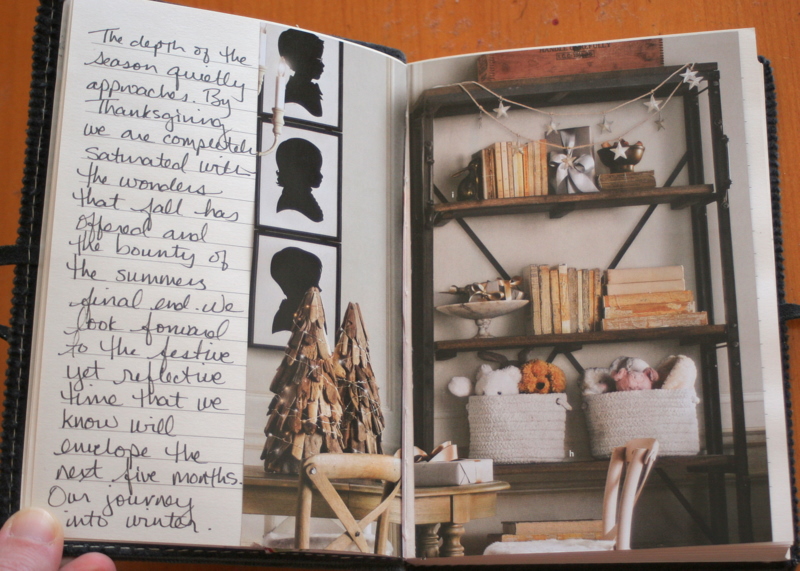 The depth of the
season quietly
approaches. By
Thanksgiving
we are completely
saturated with
the wonders
that fall has
offered and
the bounty of
the summers
final end. We
look forward
to the festive
yet reflective
time that we
know will
envelope the
next five months.
Our journey
into winter.
HANDLE CAREFULLY
h